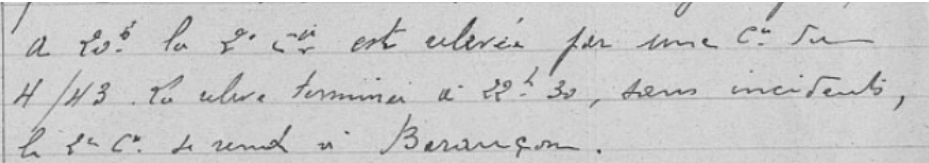 à 20h la 2e Cie est relevée par une Cie du
4/43. La relève terminée à 22h 30, sans incidents,
la 2e Cie se rend à Beraucon.